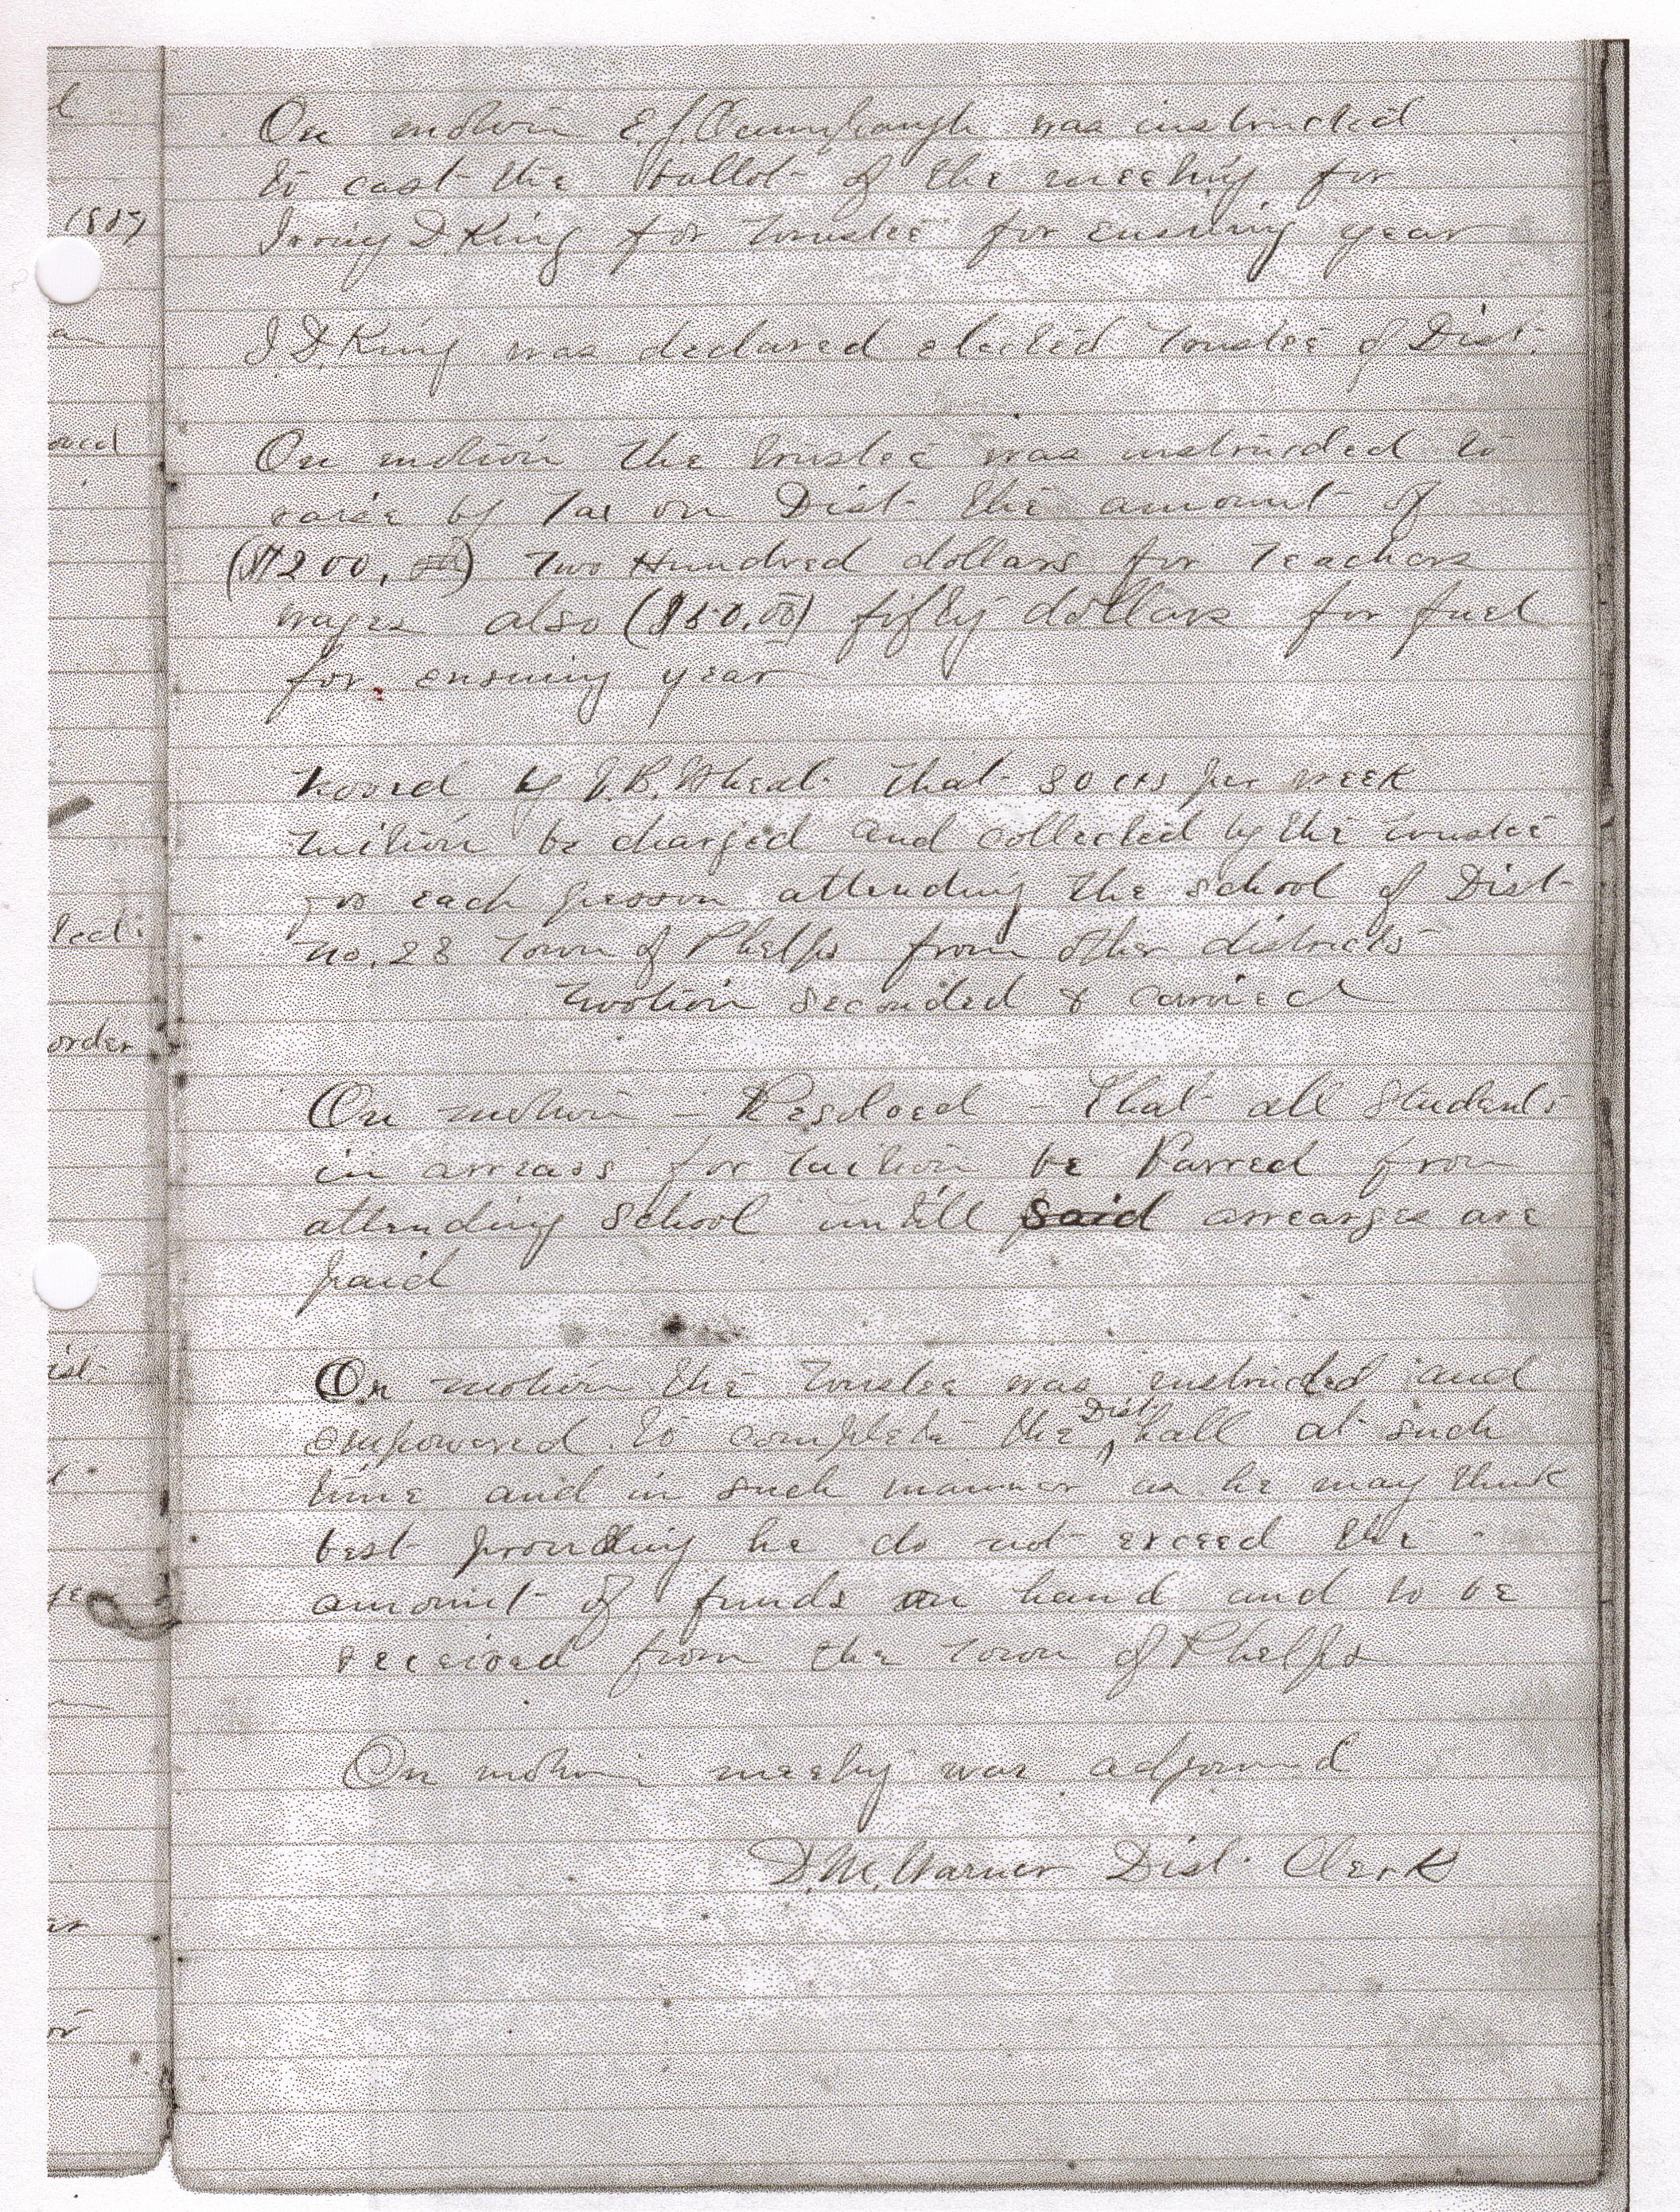 On motion E.J. was instructed
to cast the ballot of the meeting for
Irving D. King for trustee for ensuing year
I. D. King was declared elected trustee of Dist.
On motion the trustee was instructed to
raise by Tax on Dist the amount of
($200.00) Two Hundred dollars for Teachers
wages also ($50.00) fifty dollars for fuel
for ensuing year
Moved by J.B. Wheat that 30 cts per week
tuition be charged and collected by the trustee
for each person attending the school of Dist
no. 28 Town of Phelps from other districts
motion seconded & carried
On motion – Resolved – that all Students
in arrears for tuition be barred from
attending School untill said arrearges are
paid
On motion the trustee was instructed and
empowered to complete the Dist hall at such
time and in such manner as he may think
best providing he do not exceed the
amount of funds on hand and to be
received from the town of Phelps
On motion meeting was adjourned
D. W. Warner Dist. Clerk
order